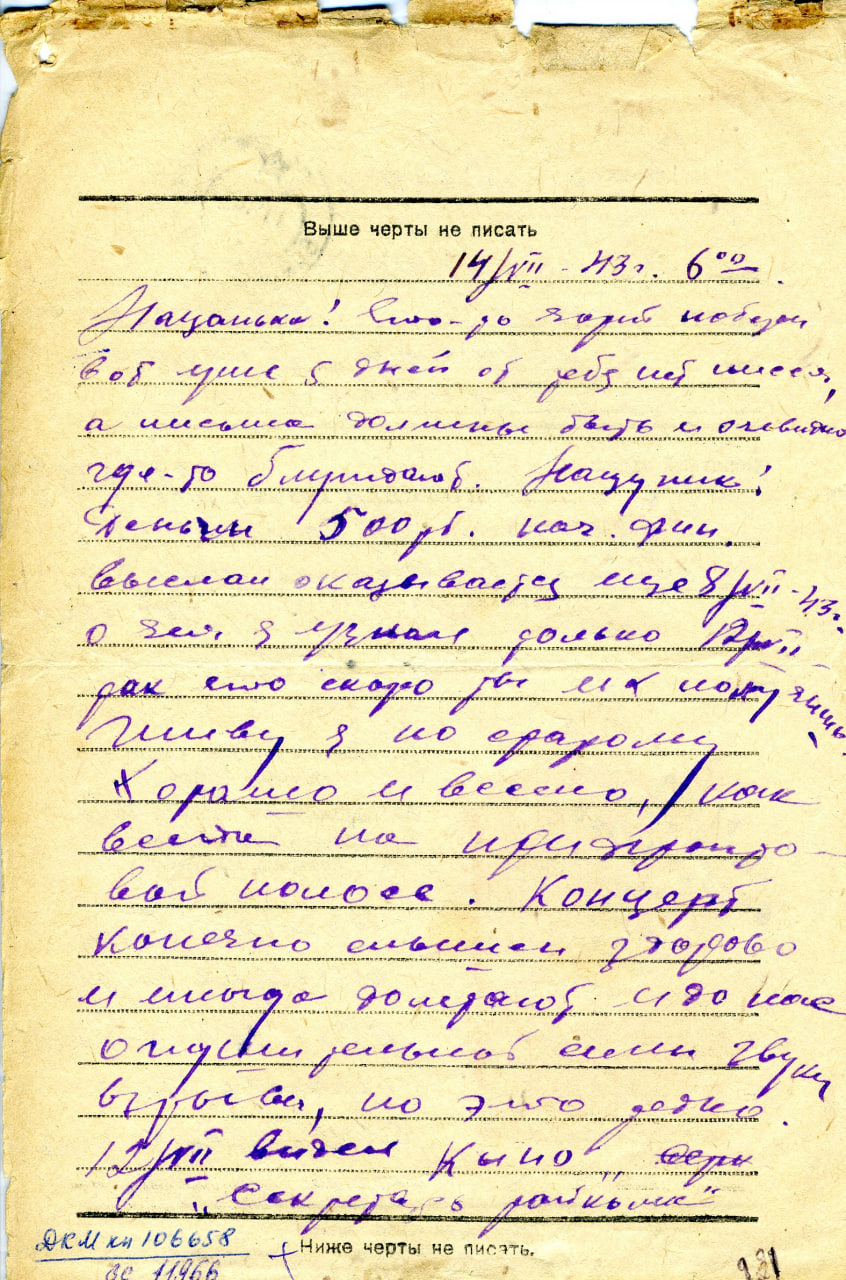 Выше черты не писать
14/VII - 43 г. 6⁰⁰
Нацанька! Что-то
вот уже 5 дней от тебя нет писем,
а письма должны быть и очевидно
где-то блуждают. Нацушик!
Деньги 500 рб. нач. фин.
выслал оказывается еще 8/VII - 43 г.
о чем я узнал только 12/VII
так что скоро ты их получишь.
Живу я по старому
Хорошо и весело, как
на прифронто-
вой полосе. Концерт
конечно слышен здорово
и иногда долетают и до нас
оглушительной силы звуки
взрыва, но это редко.
12/VII видел Кыно
„Секретарь райкома"
Ниже черты не писать.
ДКМ кп 106658
вс 11966